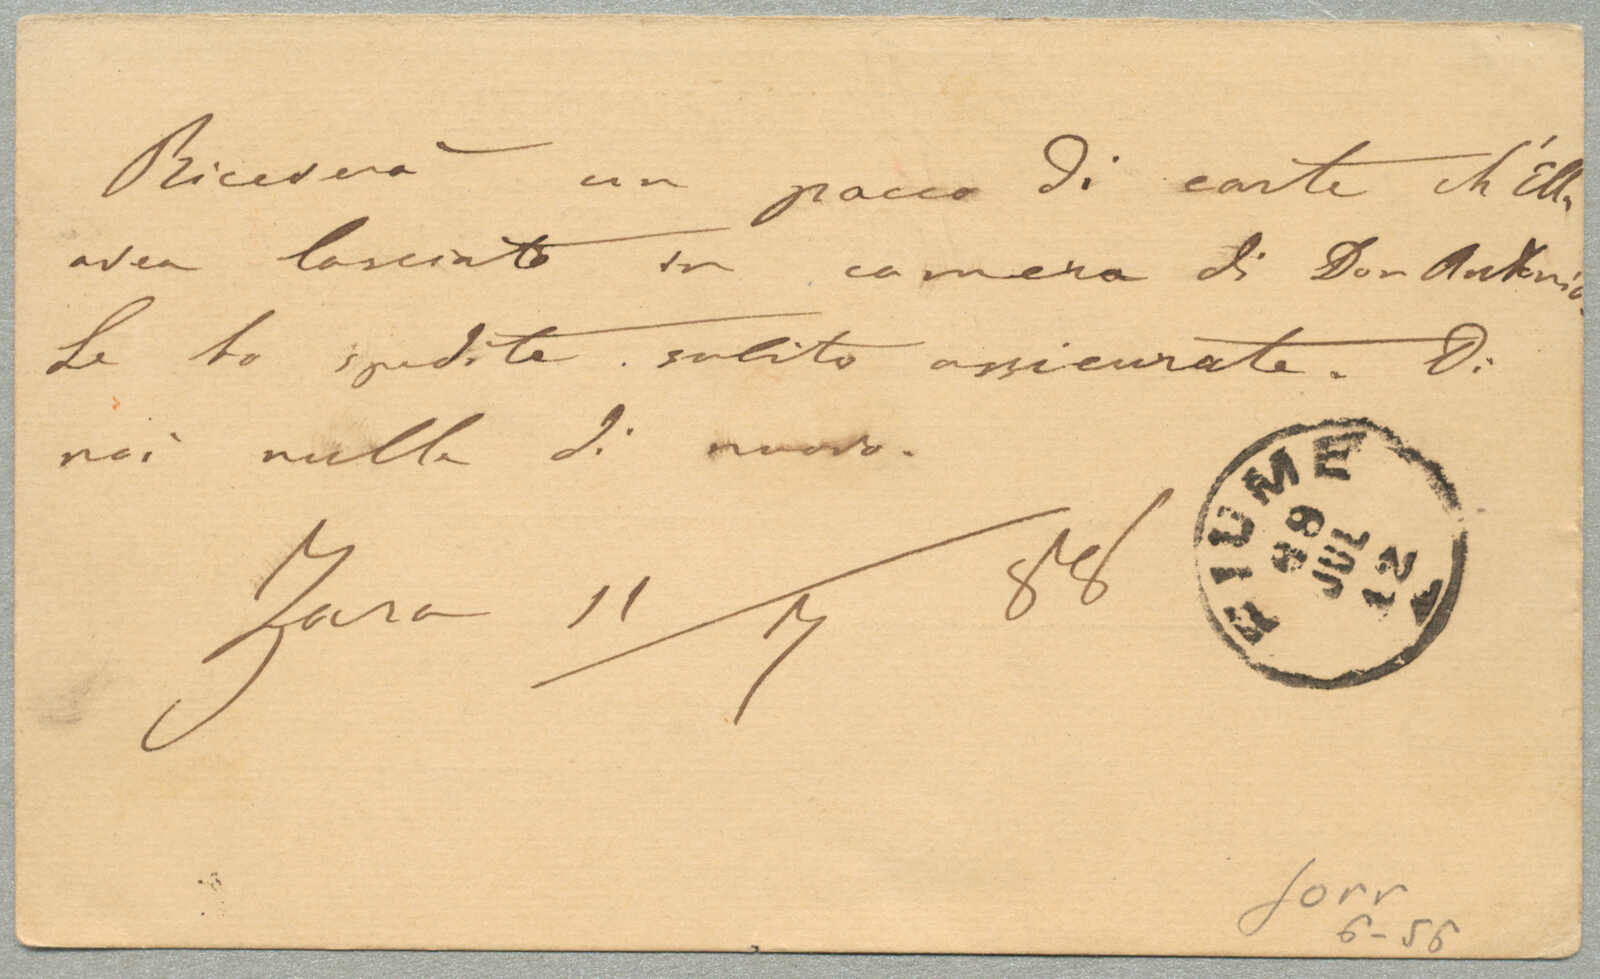 Riceverà un pacco di carte ch'Ella
avea lasciato in camera di Don Antonio.
Le ho spedite subito assicurate. Di
noi nulla di nuovo.
Zara 11/7 88
FIUME
88
JUL
12
6-56